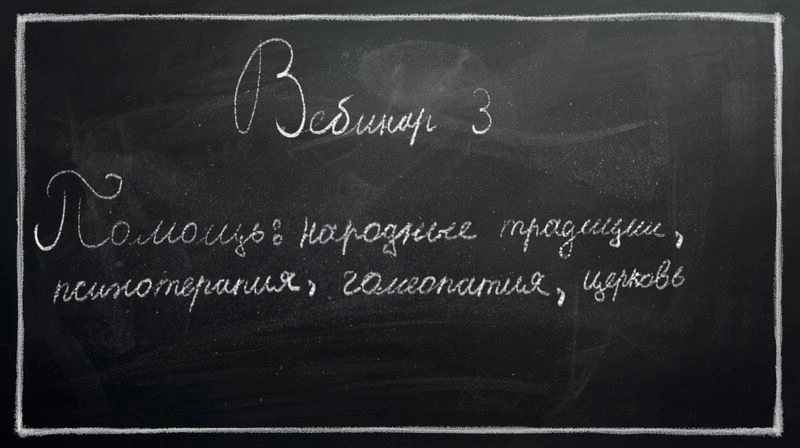 Вебинар 3
Помощь: народные традиции,
психотерапия, гомеопатия, церковь